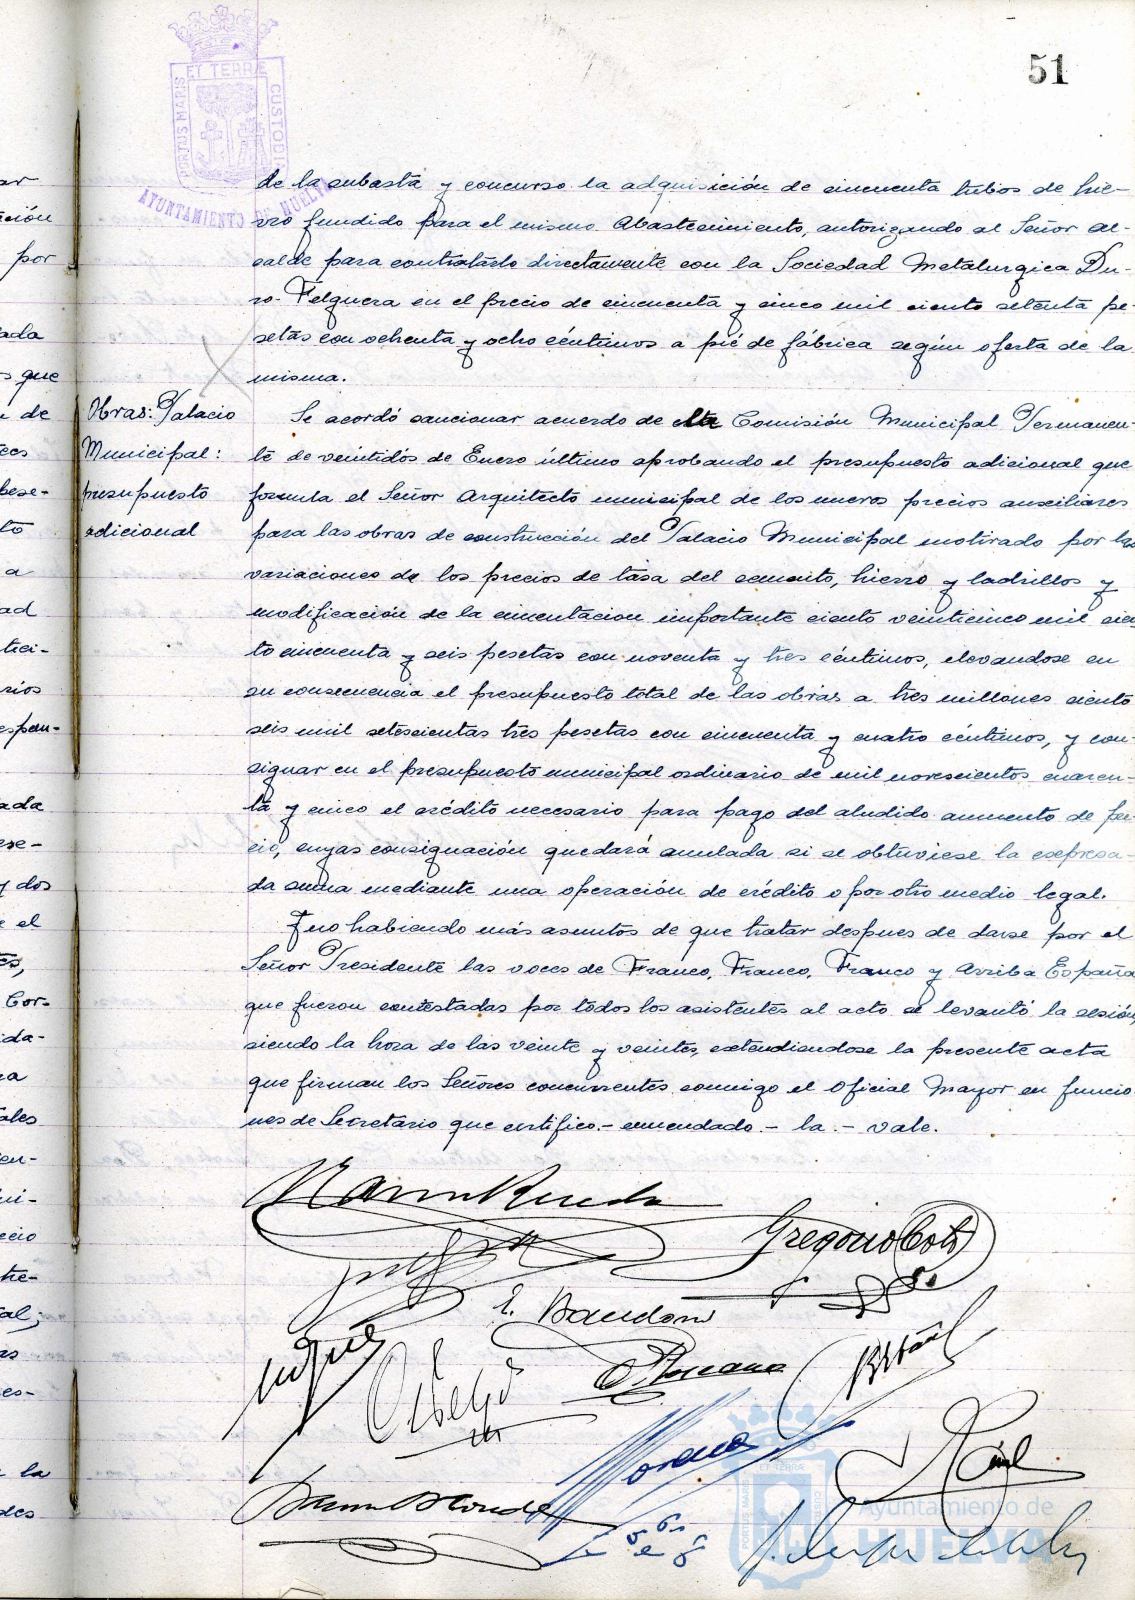 51
PORTUS MARIS ET TERRÆ CUSTODIA
AYUNTAMIENTO DE HUELVA
de la subasta y concurso la adquisición de cincuenta tubos de hie-
rro fundido para el mismo Abastecimiento, autorizando al Señor Al-
calde para contratarlo directamente con la Sociedad Metalurgica Du-
ro-Felguera en el precio de cincuenta y cinco mil ciento setenta pe-
setas con ochenta y ocho céntimos a pié de fábrica según oferta de la
misma.
Obras: Palacio
Municipal:
presupuesto
adicional
Se acordó sancionar acuerdo de la Comisión Municipal Permanen-
te de veintidós de Enero último aprobando el presupuesto adicional que
formula el Señor Arquitecto municipal de los nuevos precios auxiliares
para las obras de construcción del Palacio Municipal motivado por las
variaciones de los precios de tasa del cemento, hierro y ladrillos y
modificación de la cimentacion importante ciento veinticinco mil cien-
to cincuenta y seis pesetas con noventa y tres céntimos, elevandose en
su consecuencia el presupuesto total de las obras a tres millones ciento
seis mil setescientas tres pesetas con cincuenta y cuatro céntimos, y con-
signar en el presupuesto municipal ordinario de mil novescientos cuaren-
ta y cinco el crédito necesario para pago del aludido aumento de pre-
cio, cuyas consignación quedará anulada si se obtuviese la expresa-
da suma mediante una operación de crédito o por otro medio legal.
Y no habiendo más asuntos de que tratar despues de darse por el
Señor Presidente las voces de Franco, Franco, Franco y Arriba España
que fueron contestadas por todos los asistentes al acto se levantó la sesión,
siendo la hora de las veinte y veinte, extendiendose la presente acta
que firman los Señores concurrentes conmigo el Oficial Mayor en funcio
nes de Secretario que certifico.- enmendado.- la.- vale.
Gregorio
E.
Morano
Ayuntamiento de
HUELVA